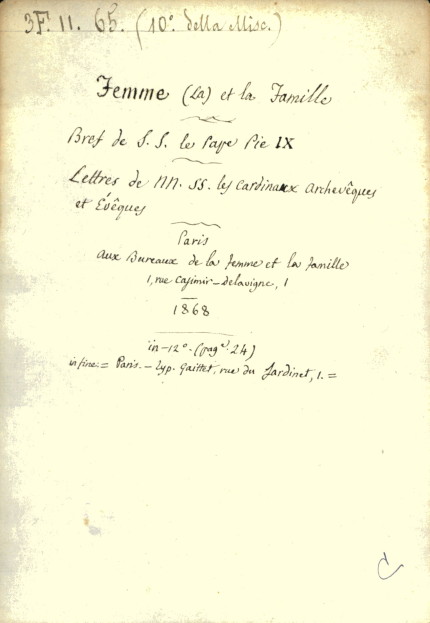 3F. 11. 65. (10º. della Misc.)
Femme (La) et la Famille
Bref de S. S. le Pape Pie IX
Lettres de NN. SS. les Cardinaux Archevêques
et Évêques
Paris
Aux Bureaux de la Femme et la Famille
1, rue Casimir-Delavigne, 1
1868
in-12º. (pag. 24)
in fine = Paris. - Typ. Gaittet, rue du Jardinet, 1. =
C